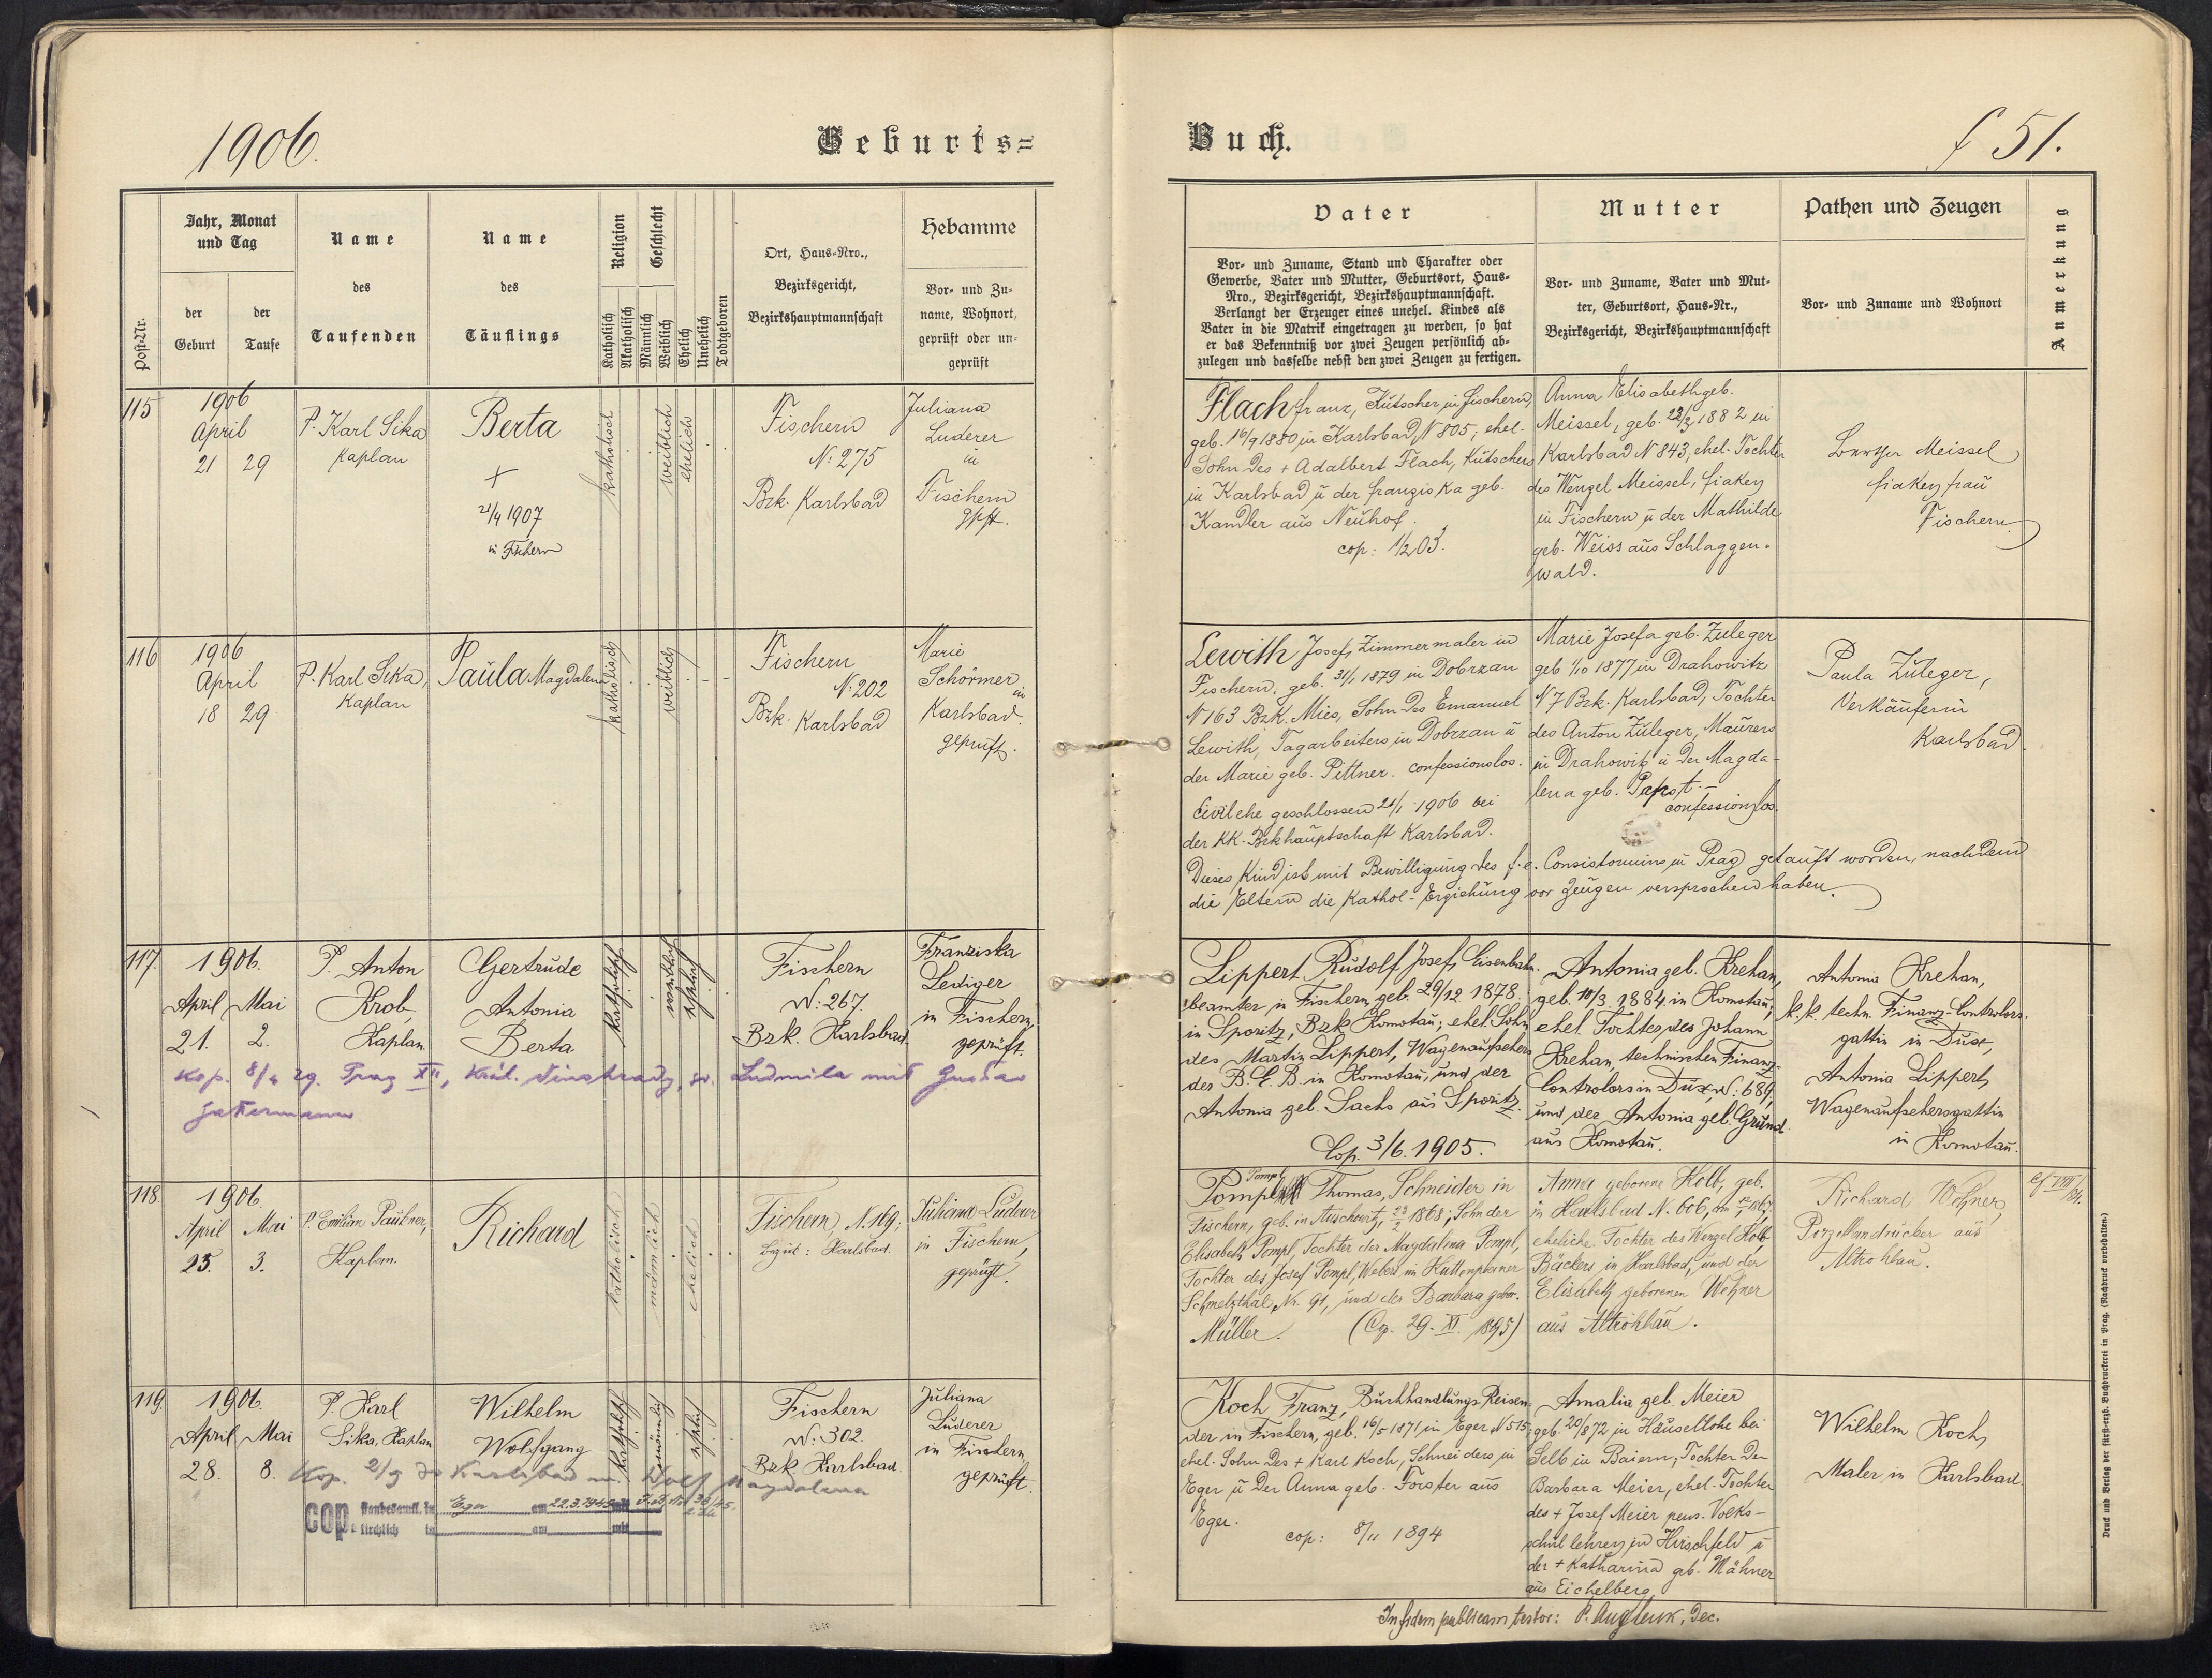 1906.
Geburts=
Buch.
f 51.
Post-Nr.
Jahr, Monat
und Tag
der
Geburt
der
Taufe
Name
des
Taufenden
Name
des
Täuflings
Religion
Katholisch
Akatholisch
Geschlecht
Männlich
Weiblich
Ehelich
Unehelich
Todtgeboren
Ort, Haus-Nro.,
Bezirksgericht,
Bezirkshauptmannschaft
Hebamme
Vor- und Zu-
name, Wohnort,
geprüft oder un-
geprüft
Vater
Vor- und Zuname, Stand und Charakter oder
Gewerbe, Vater und Mutter, Geburtsort, Haus-
Nro., Bezirksgericht, Bezirkshauptmannschaft.
Verlangt der Erzeuger eines unehel. Kindes als
Vater in die Matrik eingetragen zu werden, so hat
er das Bekenntniß vor zwei Zeugen persönlich ab-
zulegen und dasselbe nebst den zwei Zeugen zu fertigen.
Mutter
Vor- und Zuname, Vater und Mut-
ter, Geburtsort, Haus-Nr.,
Bezirksgericht, Bezirkshauptmannschaft
Pathen und Zeugen
Vor- und Zuname und Wohnort
Anmerkung
115
1906
April
21 29
P. Karl Sika
Kaplan
Berta
+
21/4 1907
in Fischern
katholisch
weiblich
ehelich
Fischern
N: 275
Bzk. Karlsbad
Juliana
Luderer
in
Fischern
gpft.
Flach Franz, Kutscher in Fischern,
geb. 16/9 1880 in Karlsbad, N 805; ehel.
Sohn des + Adalbert Flach, Kutschers
in Karlsbad u der Franziska geb.
Kandler aus Neuhof.
cop: 1/2 03.
Anna Elisabeth geb.
Meissel, geb. 22/3 1882 in
Karlsbad N 843, ehel. Tochter
des Wenzel Meissel, Fiakers
in Fischern u der Mathilde
geb. Weiss aus Schlaggen-
wald.
Meissel
Fiakersfrau
Fischern
116
1906
April
18 29
P. Karl Sika,
Kaplan
Paula Magdalena
katholisch
weiblich
Fischern
N: 202
Bzk. Karlsbad
Marie
Schörmer
in
Karlsbad.
geprüft.
Lewith Josef, Zimmermaler in
Fischern, geb. 31/1 1879 in Dobrzan
N 163 Bzk. Mies, Sohn des Emanuel
Lewith, Tagarbeiters in Dobrzan u
der Marie geb. Pittner. confessionslos.
Civilehe geschlossen 21/1 1906 bei
der KK. Bzkhauptschaft Karlsbad.
Marie Josefa geb. Zuleger
geb 1/10 1877 in Drahowitz
N 7 Bzk. Karlsbad, Tochter
des Anton Zuleger, Maurers
in Drahowitz u der Magda-
lena geb. Papst.
confessionslos.
Dieses Kind ist mit Bewilligung des f. e. Consistoriums in Prag getauft worden, nachdem
die Eltern die kathol. Erziehung vor Zeugen versprochen haben.
Paula Zuleger,
Verkäuferin
Karlsbad.
117.
1906.
April Mai
21. 2.
P. Anton
Krob,
Kaplan.
Gertrude
Antonia
Berta
katholisch
weiblich
ehelich
Fischern
N: 267.
Bzk. Karlsbad.
Franziska
Lediger
in Fischern,
geprüft.
Kop. 8/4 29. Prag XII, Král. Vinohrady, sv. Ludmila mit Gustav
Jakermann
Lippert Rudolf Josef, Eisenbahn-
beamter in Fischern, geb. 29/12 1878
in Sporitz, Bzk Komotau, ehel. Sohn
des Martin Lippert, Wagenaufsehers
der B. E. B. in Komotau, und der
Antonia geb. Sachs aus Sporitz.
Cop. 3/6. 1905.
Antonia geb. Krehan,
geb. 10/3. 1884 in Komotau,
ehel. Tochter des Johann
Krehan, technischen Finanz-
Controlors in Dux N: 689,
und der Antonia geb. Gründ
aus Komotau.
Antonia Krehan,
k. k. techn. Finanz-Controlors-
gattin in Dux,
Antonia Lippert,
Wagenaufsehersgattin
in Komotau.
118.
1906
April Mai
25. 3.
P. Emilian Paukner,
Kaplan.
Richard
katholisch
männlich
ehelich
Fischern, N. 169;
Bezirk: Karlsbad.
Juliana Luderer
in Fischern,
geprüft.
Pompl
Thomas, Schneider in
Fischern, geb. in 1868; Sohn der
Elisabeth Pompl, Tochter der Magdalena Pompl,
Tochter des Josef Pompl, Webers in
Schmelzthal, Nr. 91, und der Barbara gebor.
Müller. (Cop. 29. XI. 1895)
Anna geborene Kolb, geb.
in Karlsbad N. 606, am
eheliche Tochter des Wenzel Kolb
Bäckers in Karlsbad, und der
Elisabeth geborenen Wohner
aus Altrohlau.
Richard Wohner,
Porzellandrucker aus
Altrohlau.
119.
1906
April Mai
28. 8.
P. Karl
Sika, Kaplan
Wilhelm
Wolfgang
katholisch
männlich
ehelich
Fischern
N: 302.
Bzk. Karlsbad.
Juliana
Luderer
in Fischern,
geprüft.
Kop. 2/9 30 Karlsbad m. Wolf Magdalena
COP. standesamtl. in Eger am 22.3.1945 mit
kirchlich in am mit
Koch Franz, Buchhandlungs-Reisen-
der in Fischern, geb. 16/5 1871 in Eger N 515,
ehel. Sohn des + Karl Koch, Schneiders in
Eger u der Anna geb. Forster aus
Eger.
cop: 8/11 1894
Amalia geb. Meier
geb. 20/8 72 in Häusellohe bei
Selb in Baiern, Tochter der
Barbara Meier, ehel. Tochter
des + Josef Meier pens. Volks-
schullehrers in Hirschfeld u
der + Katharina geb. Mähner
aus Eichelberg
Wilhelm Koch,
Maler in Karlsbad.
In fidem publicam testor: P. Aug. , Dec.
Druck und Verlag der fürsterzb. Buchdruckerei in Prag. (Nachdruck vorbehalten.)